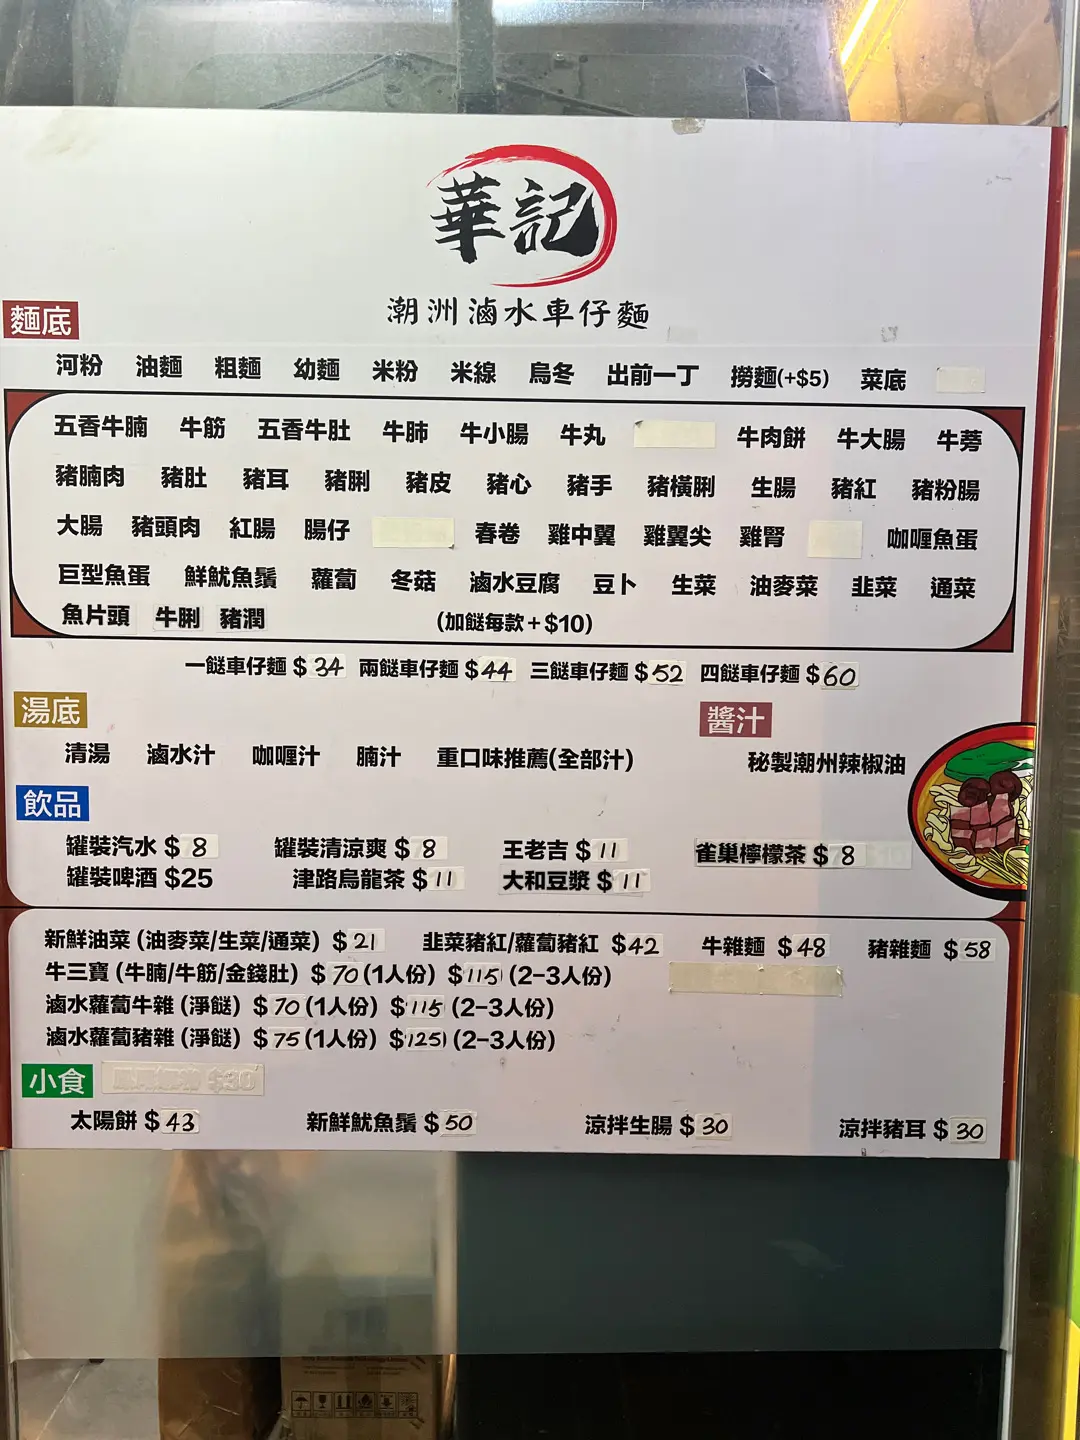 華記
潮洲滷水車仔麵
麵底
河粉 油麵 粗麵 幼麵 米粉 米線 烏冬 出前一丁 撈麵(+$5) 菜底
五香牛腩 牛筋 五香牛肚 牛肺 牛小腸 牛丸 牛肉餅 牛大腸 牛蒡
豬腩肉 豬肚 豬耳 豬脷 豬皮 豬心 豬手 豬橫脷 生腸 豬紅 豬粉腸
大腸 豬頭肉 紅腸 腸仔 春卷 雞中翼 雞翼尖 雞腎 咖喱魚蛋
巨型魚蛋 鮮魷魚鬚 蘿蔔 冬菇 滷水豆腐 豆卜 生菜 油麥菜 韭菜 通菜
魚片頭 牛脷 豬潤 (加餸每款+$10)
一餸車仔麵 $34 兩餸車仔麵 $44 三餸車仔麵 $52 四餸車仔麵 $60
湯底 醬汁
清湯 滷水汁 咖喱汁 腩汁 重口味推薦(全部汁) 秘製潮州辣椒油
飲品
罐裝汽水 $8 罐裝清涼爽 $8 王老吉 $11 雀巢檸檬茶 $8
罐裝啤酒 $25 津路烏龍茶 $11 大和豆漿 $11
新鮮油菜 (油麥菜/生菜/通菜) $21 韭菜豬紅/蘿蔔豬紅 $42 牛雜麵 $48 豬雜麵 $58
牛三寶 (牛腩/牛筋/金錢肚) $70 (1人份) $115 (2-3人份)
滷水蘿蔔牛雜 (淨餸) $70 (1人份) $115 (2-3人份)
滷水蘿蔔豬雜 (淨餸) $75 (1人份) $125 (2-3人份)
小食 $30
太陽餅 $43 新鮮魷魚鬚 $50 涼拌生腸 $30 涼拌豬耳 $30